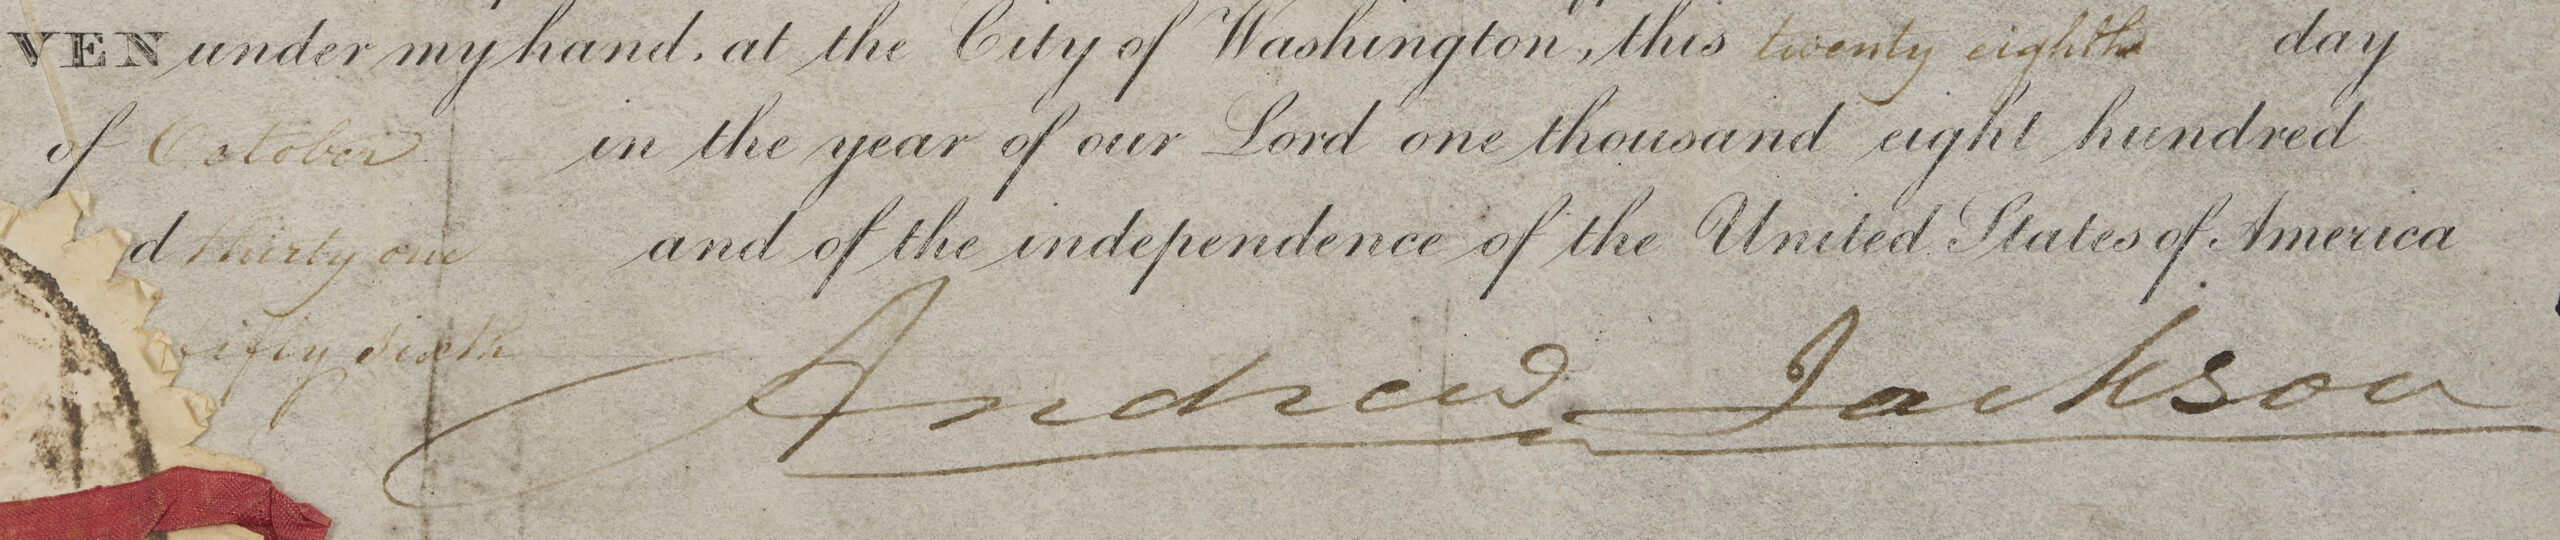 VEN under my hand. at the City of Washington, this twenty eighth day
of October in the year of our Lord one thousand eight hundred
d thirty one and of the independence of the United States of America
fifty sixth
Andrew Jackson